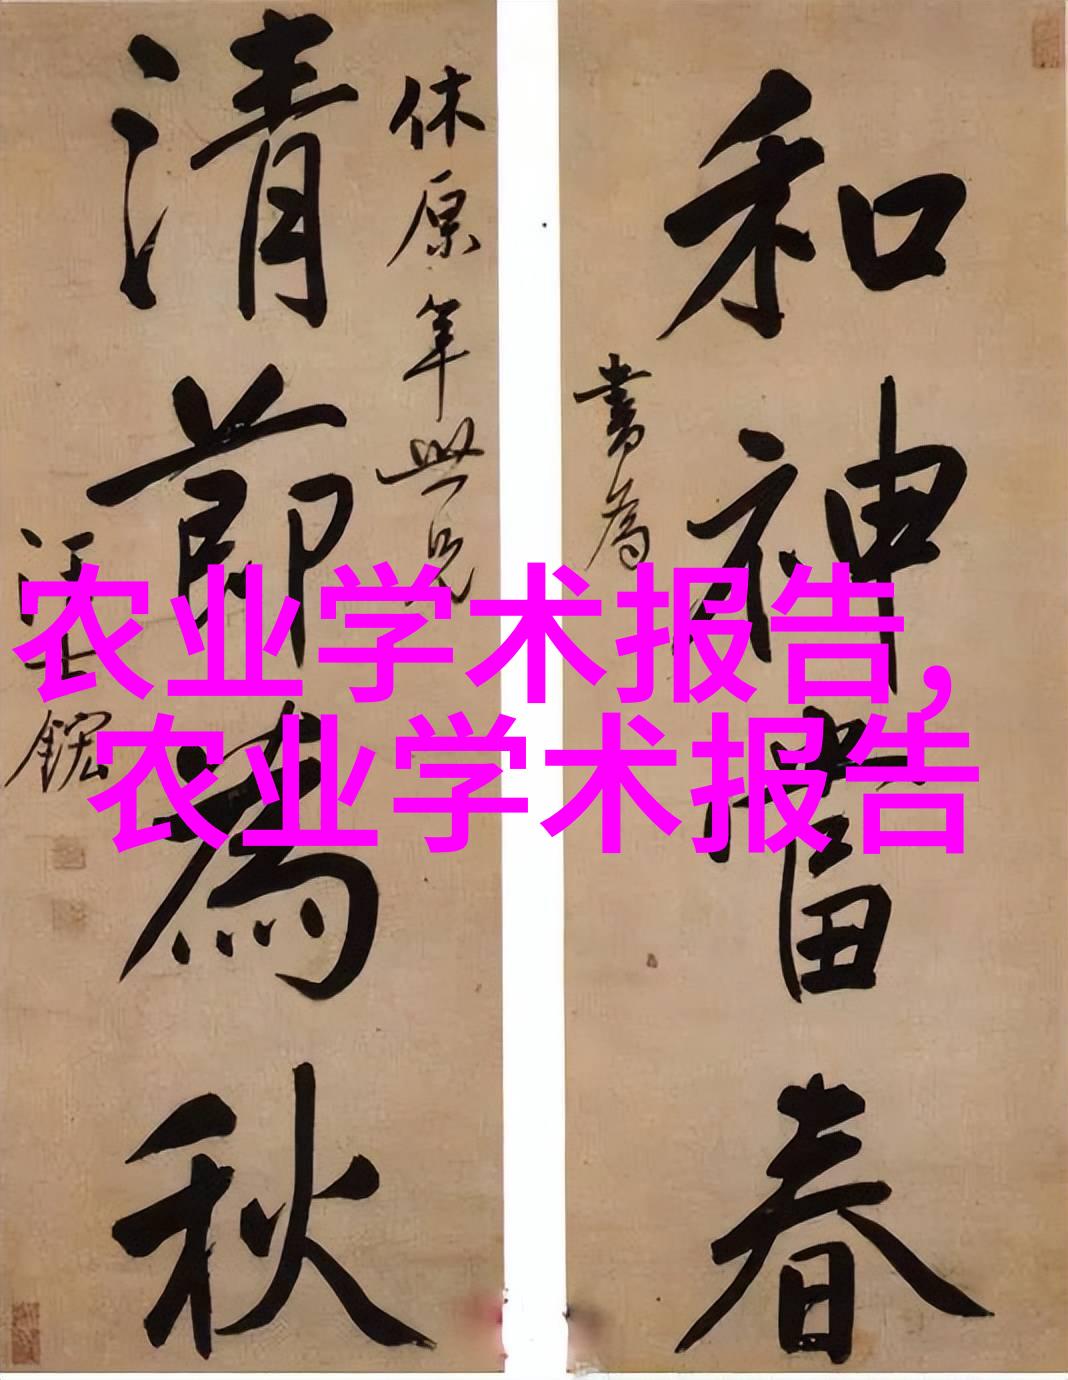 和神當春
書為
休原年世兄
清節為秋
汪士鋐
农业学术报告,
农业学术报告